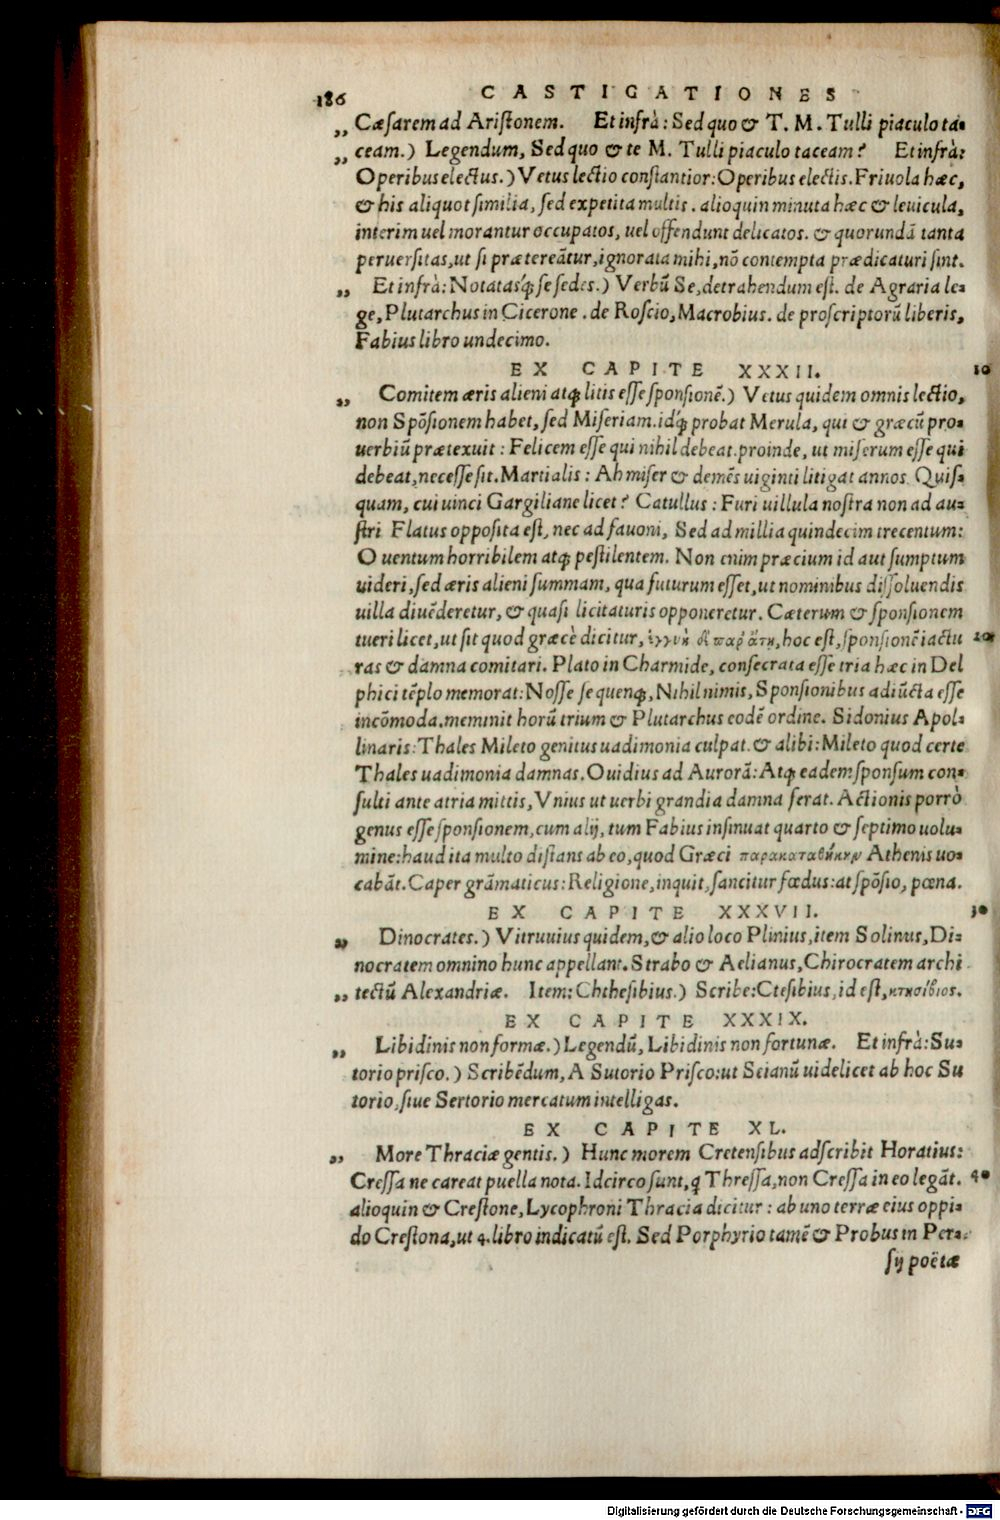 186 CASTIGATIONES
„ Cæsarem ad Aristonem. Et infrà: Sed quo & T. M. Tulli piaculo ta-
„ ceam.) Legendum, Sed quo & te M. Tulli piaculo taceam? Et infrà:
Operibus electus.) Vetus lectio constantior: Operibus electis. Friuola hæc,
& his aliquot similia, sed expetita multis. alioquin minuta hæc & leuicula,
interim uel morantur occupatos, uel offendunt delicatos. & quorundā tanta
peruersitas, ut si prætereātur, ignorata mihi, nō contempta prædicaturi sint.
„ Et infrà: Notatasq́; se sedes.) Verbū Se, detrahendum est. de Agraria le-
ge, Plutarchus in Cicerone. de Roscio, Macrobius. de proscriptorū liberis,
Fabius libro undecimo.
EX CAPITE XXXII. 10
„ Comitem æris alieni atq; litis esse sponsionē.) Vetus quidem omnis lectio,
non Spōsionem habet, sed Miseriam. idq́; probat Merula, qui & græcū pro-
uerbiū prætexuit: Felicem esse qui nihil debeat. proinde, ut miserum esse qui
debeat, necesse sit. Martialis: Ah miser & demēs uiginti litigat annos Quis-
quam, cui uinci Gargiliane licet? Catullus: Furi uillula nostra non ad au-
stri Flatus opposita est, nec ad fauoni, Sed ad millia quindecim trecentum:
O uentum horribilem atq; pestilentem. Non enim præcium id aut sumptum
uideri, sed æris alieni summam, qua futurum esset, ut nominibus dissoluendis
uilla diuēderetur, & quasi licitaturis opponeretur. Cæterum & sponsionem
tueri licet, ut sit quod græcè dicitur, ἐγγύη δ̓ παρ ἄτη, hoc est, sponsionē iactu 20
ras & damna comitari. Plato in Charmide, consecrata esse tria hæc in Del
phici tēplo memorat: Nosse se quenq;, Nihil nimis, Sponsionibus adiūcta esse
incōmoda. meminit horū trium & Plutarchus eodē ordine. Sidonius Apol-
linaris: Thales Mileto genitus uadimonia culpat. & alibi: Mileto quod certe
Thales uadimonia damnas. Ouidius ad Aurorā: Atq; eadem sponsum con-
sulti ante atria mittis, Vnius ut uerbi grandia damna ferat. Actionis porrò
genus esse sponsionem, cum alij, tum Fabius insinuat quarto & septimo uolu-
mine: haud ita multo distans ab eo, quod Græci παρακαταθήκην Athenis uo-
cabāt. Caper grāmaticus: Religione, inquit, sancitur fœdus: at spōsio, pœna.
EX CAPITE XXXVII. 30
„ Dinocrates.) Vitruuius quidem, & alio loco Plinius, item Solinus, Di-
nocratem omnino hunc appellant. Strabo & Aelianus, Chirocratem archi
„ tectū Alexandriæ. Item: Chthesibius.) Scribe: Ctesibius, id est, κτησίβιος.
EX CAPITE XXXIX.
„ Libidinis non formæ.) Legendū, Libidinis non fortunæ. Et infrà: Su-
torio prisco.) Scribēdum, A Sutorio Prisco: ut Seianū uidelicet ab hoc Su
torio, siue Sertorio mercatum intelligas.
EX CAPITE XL.
„ More Thraciæ gentis.) Hunc morem Cretensibus adscribit Horatius:
Cressa ne careat puella nota. Idcirco sunt, q Thressa, non Cressa in eo legāt. 40
alioquin & Crestone, Lycophroni Thracia dicitur: ab uno terræ eius oppi-
do Crestona, ut 4. libro indicatū est. Sed Porphyrio tamē & Probus in Per-
sij poëtæ
Digitalisierung gefördert durch die Deutsche Forschungsgemeinschaft - DFG